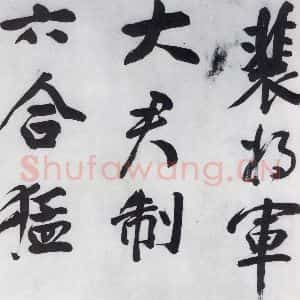 裴将軍
大君制
六合猛
Shufawang.CN